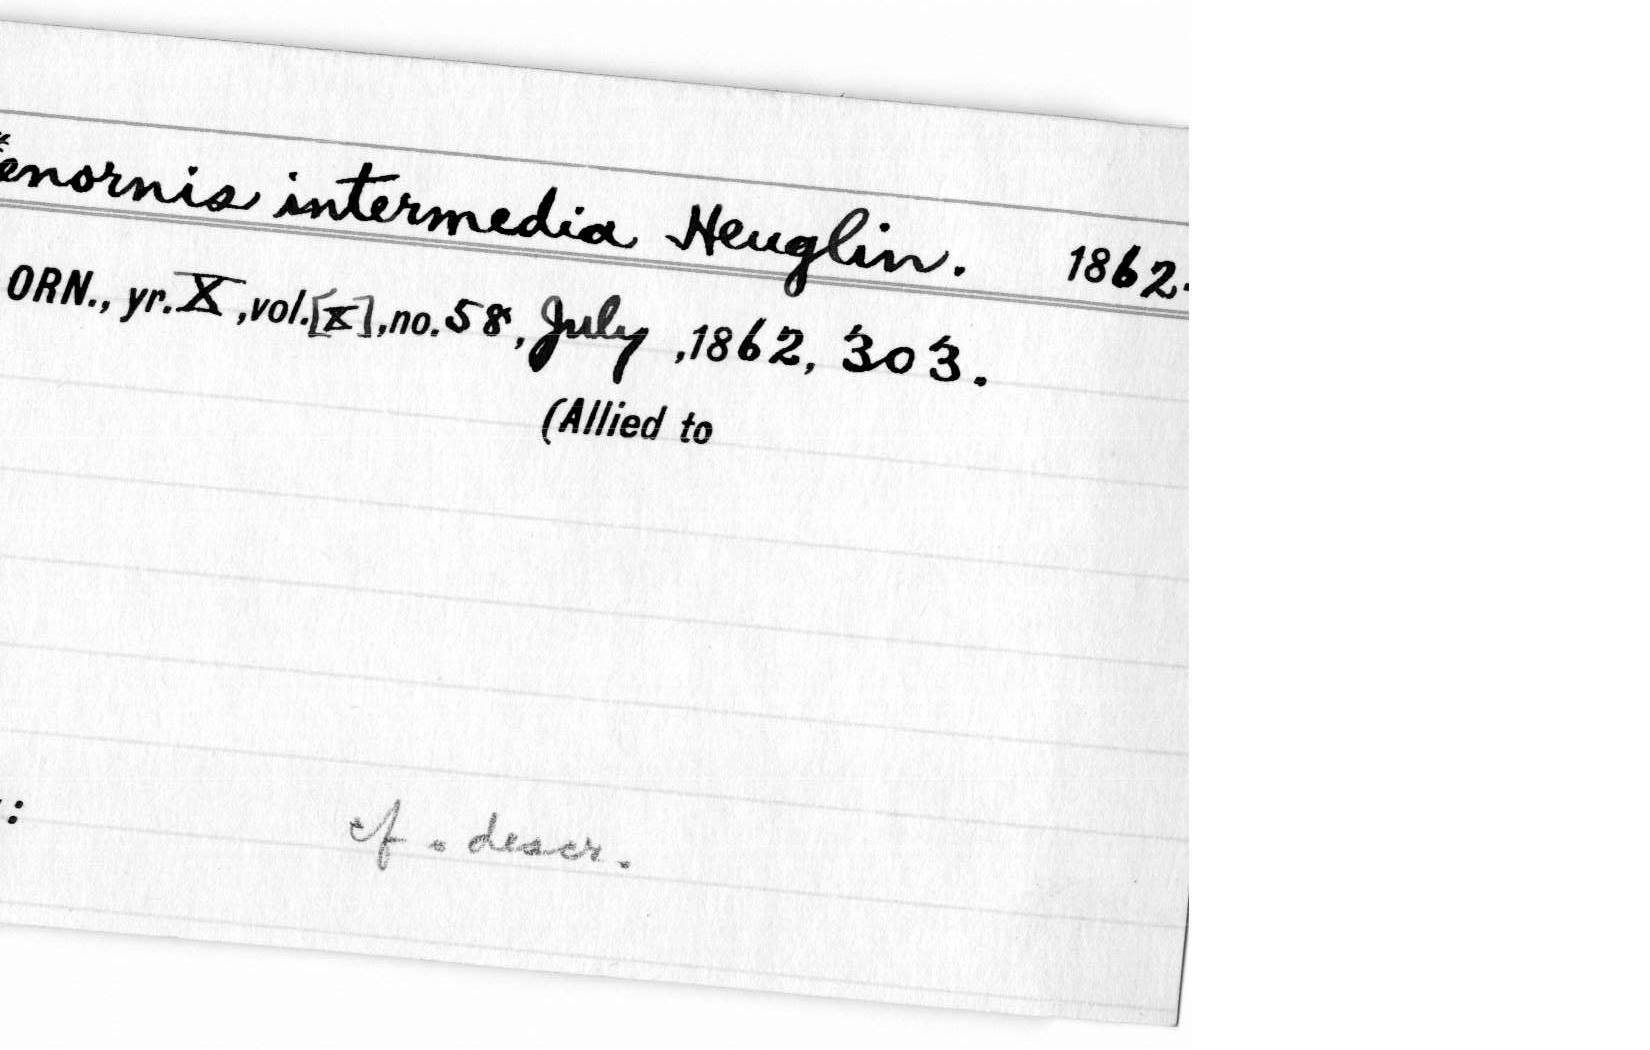 enornis intermedia Heuglin. 1862.
ORN., yr. X, vol. [X], no. 58, July, 1862, 303.
(Allied to
:
cf. descr.